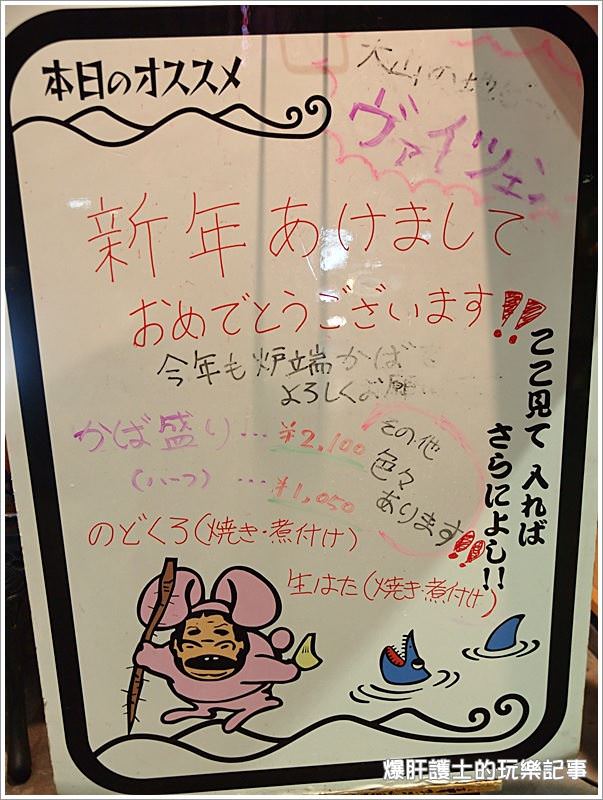 本日のオススメ
大山の地
ヴァイツェン
新年あけまして
おめでとうございます!!
今年も炉端かばを
よろしくお願
かば盛り…¥2,100
(ハーフ)…¥1,050
その他
色々
あります!!
のどくろ(焼き・煮付け)
生はた(焼き・煮付け)
ここ見て入れば
さらによし!!
爆肝護士的玩樂記事